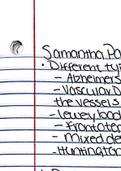 Samantha Pa
• Different ty
- Alzheimers
- Vascular D
the vessels
- lewey bod
- Frontoter
- Mixed de
- Huntington